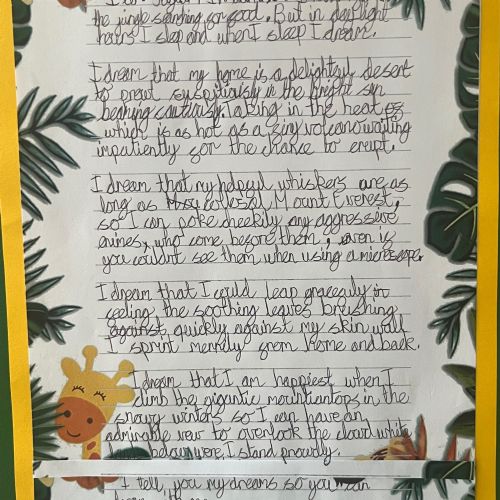 the jungle searching for food. But in daylight
hours I sleep and when I sleep I dream.
I dream that my home is a delightful desert
to prowl suspitiously in the bright sun
beaming cautiously. Taking in the heat of
which is as hot as a tiny volcano waiting
impatiently for the chance to erupt.
I dream that my helpful whiskers are as
long as colossal Mount Everest,
so I can poke cheekily any aggressive
enimes, who come before them, even if
you couldnt see them when using a microscope.
I dream that I could leap gracefully in
feeling the soothing leaves brushing
against quickly against my skin wall
I sprint merrely from home and back.
I dream that I am happiest when I
climb the gigantic mountiantops in the
snowy winters so I can have an
admirable vew to overlook the cloud white
below were I stand proudly.
I tell you my dreams so you can